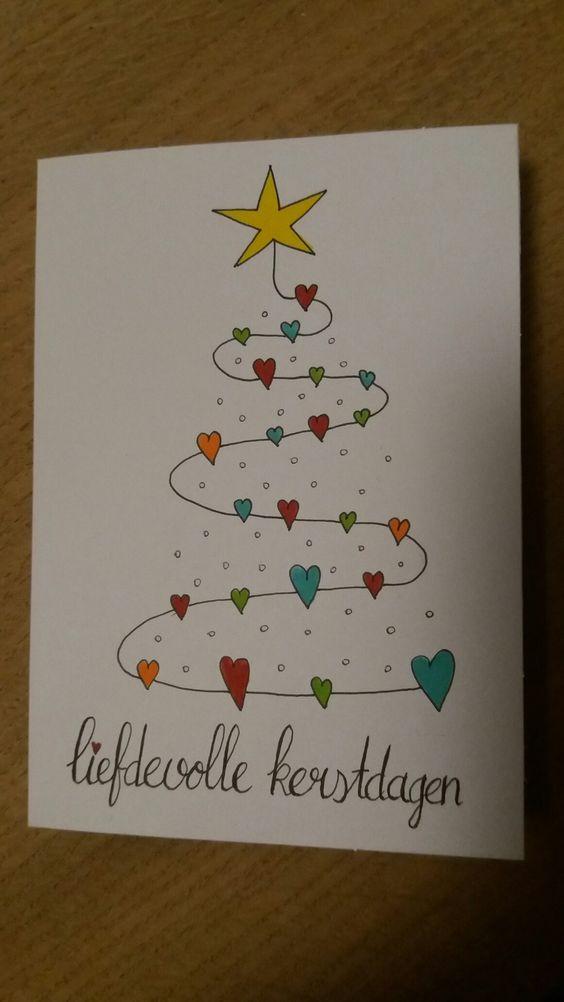 liefdevolle kerstdagen